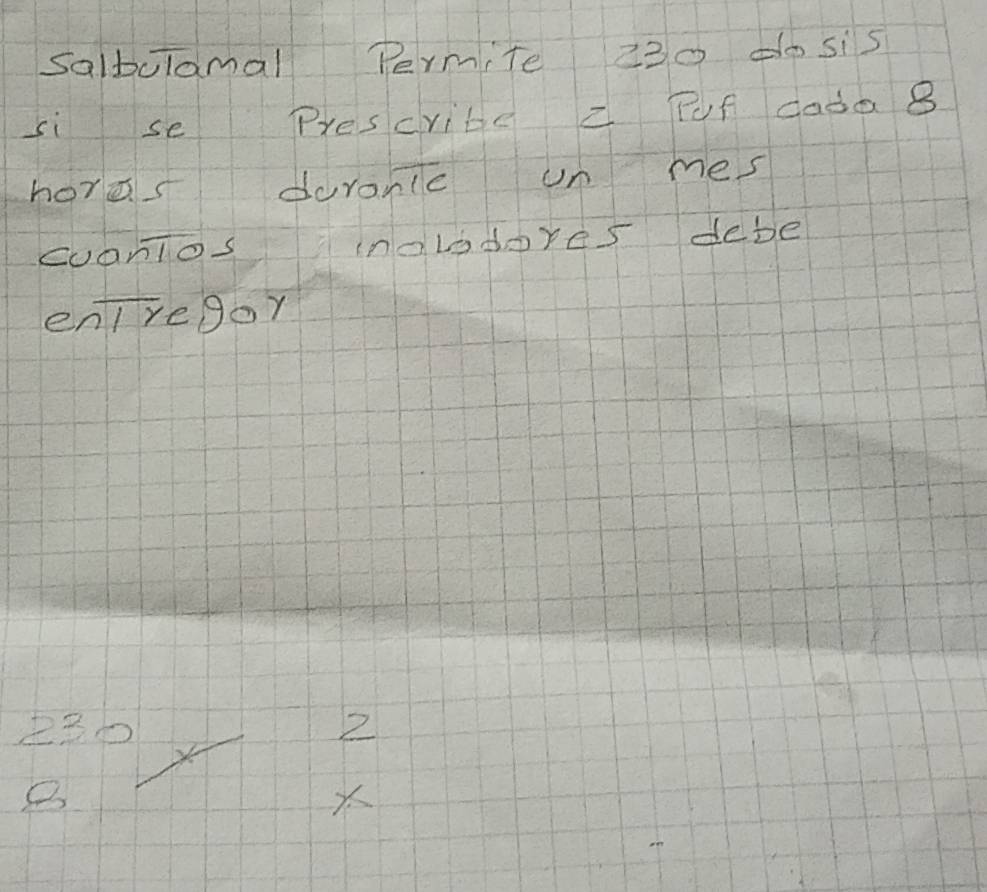 Salbutamal Permite 230 dosis
si se Prescribe 2 Puf cada 8
horas durante un mes
cuantos inaladores debe
entregar
230 x 2
8 x